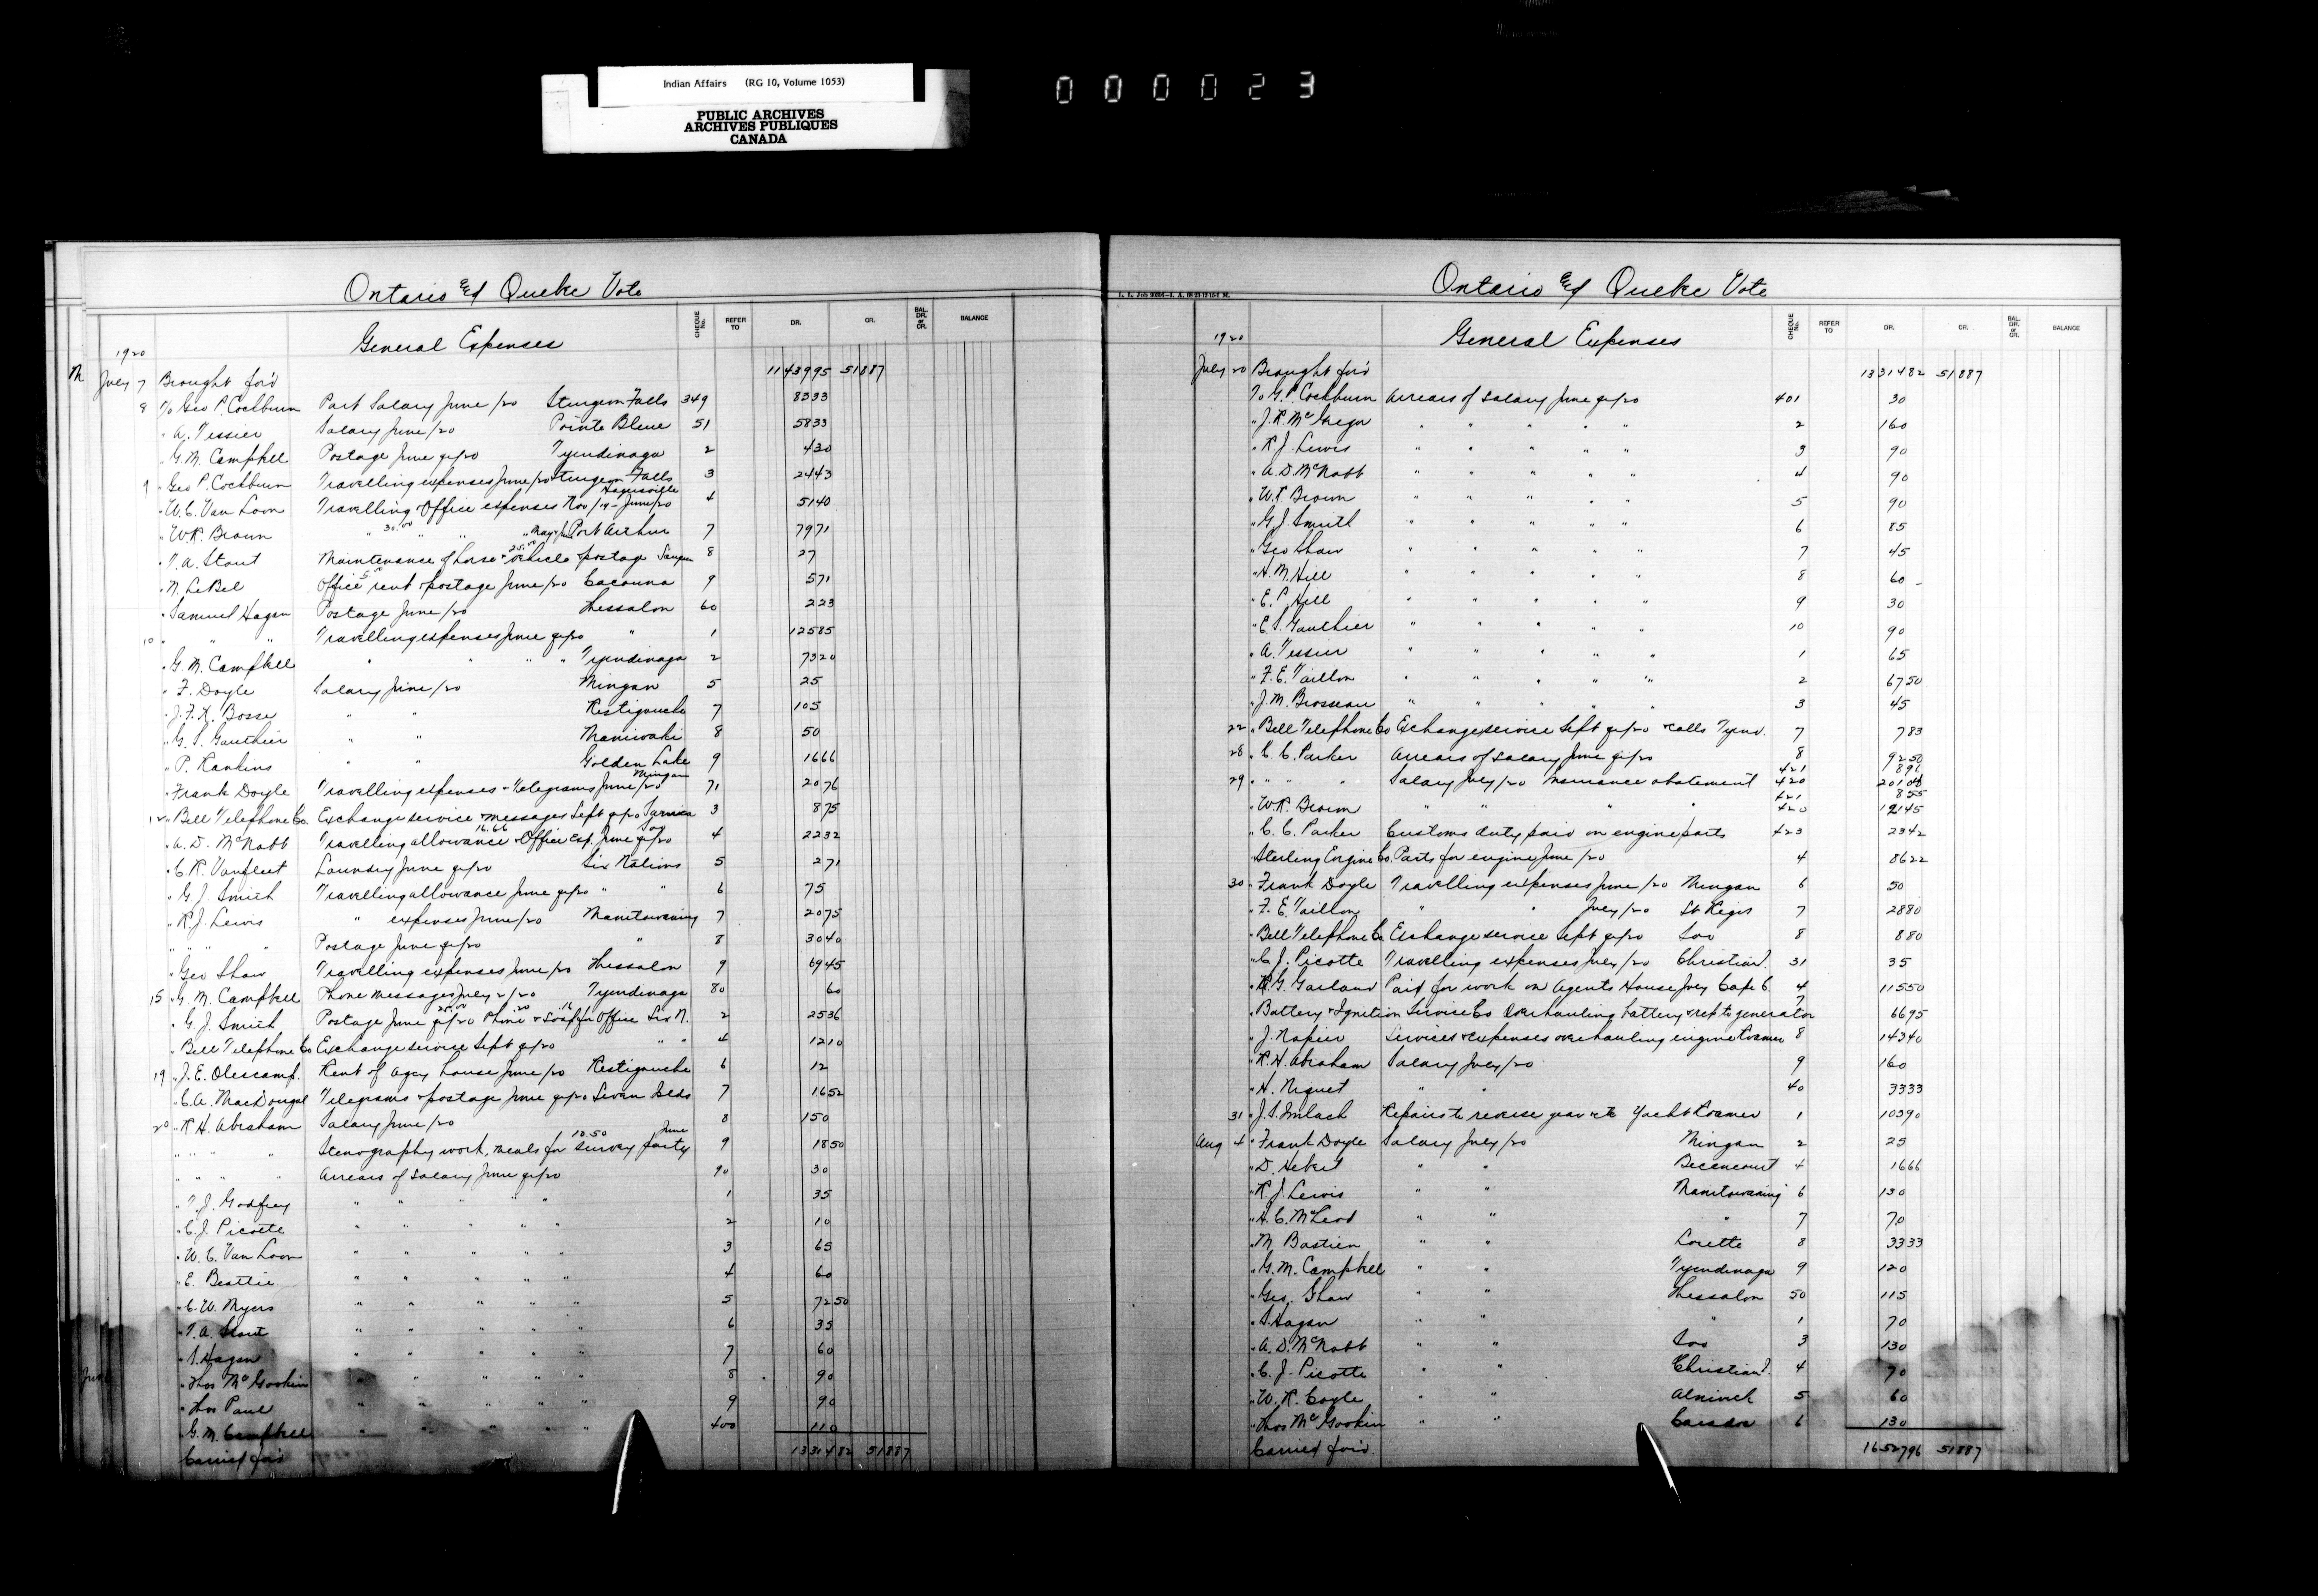 Indian Affairs (RG 10, Volume 1053)
PUBLIC ARCHIVES
ARCHIVES PUBLIQUES
CANADA
000023
Ontario & Quebec Vote
General Expenses CHEQUE No. REFER TO DR. CR. BAL. DR. or CR. BALANCE
1920
July 7 Brought for'd 1143995 51887
8 To Geo P. Cockburn Part Salary June /20 Sturgeon Falls 349 8333
" A. Tessier Salary June /20 Pointe Bleue 51 5833
" G. M. Campbell Postage June qr/20 Tyendinaga 2 430
9 " Geo P. Cockburn Travelling expenses June/20 Sturgeon Falls 3 2443
" W. C. Van Loon Travelling & Office expenses Nov/19 - June/20 Hagersville 4 5140
" W.R. Brown " 30.00 " " " May & Ju Port Arthur 7 7971
" T. A. Stout Maintenance of horse & vehicle 25.00 & postage Saugeen 8 27
" N. LeBel Office rent & postage June/20 Cacouna 9 571
" Samuel Hagan Postage June /20 Thessalon 60 223
10 " " " Travelling expenses June qr/20 " 1 12585
" G. M. Campbell " " " " Tyendinaga 2 7320
" F. Doyle Salary June /20 Mingan 5 25
" J. F. X. Bosse " " Restigouche 7 105
" G. S. Gauthier " " Maniwaki 8 50
" P. Rankins " " Golden Lake 9 1666
" Frank Doyle Travelling expenses & Telegrams June /20 Mingan 71 2076
12 " Bell Telephone Co. Exchange service & messages Sept qr/20 Sarnia 3 875
" A. D. McNabb Travelling allowance 16.66 & Office exp. June qr/20 Soo 4 2232
" C. R. Vanfleet Laundry June qr/20 Six Nations 5 271
" G J. Smith Travelling allowance June qr/20 " " 6 75
" R. J. Lewis " expenses June/20 Manitowaning 7 2075
" " " " Postage June qr/20 " 8 3040
" Geo Shaw Travelling expenses June /20 Thessalon 9 6945
15 " G. M. Campbell Phone messages July 2/20 Tyendinaga 80 60
" G. J. Smith Postage June qr/20 25.00 Phone .20 & Soap .16 for Office Six N. 2 2536
" Bell Telephone Co Exchange service Sept qr/20 " " 4 1210
19 " J. E. Olescamp. Rent of Agcy house June /20 Restigouche 6 12
" C. A. MacDougal Telegrams & postage June qr/20 Seven Ilds 7 1652
20 " R. H. Abraham Salary June /20 8 150
" " " " Stenography work, meals for 10.50 survey party June 9 1850
" " " " Arrears of Salary June qr/20 90 30
" T. J. Godfrey " " " " " 1 35
" C. J. Picotte " " " " " 2 10
" W. C. Van Loon " " " " " 3 65
" E. Beattie " " " " " 4 60
" C. W. Myers " " " " " 5 7250
" T. A. Stout " " " " " 6 35
" S. Hagan " " " " " 7 60
" Thos McGookin " " " " " 8 90
" Thos Paul " " " " " 9 90
" G. M. Campbell " " " " " 400 110
Carried for'd 1331482 51887
Ontario & Quebec Vote
General Expenses CHEQUE No. REFER TO DR. CR. BAL. DR. or CR. BALANCE
1920
July 20 Brought for'd 1331482 51887
To G. P. Cockburn Arrears of Salary June qr/20 401 30
" J. R. McGregor " " " " " 2 160
" R. J. Lewis " " " " " 3 90
" A. D. McNabb " " " " " 4 90
" W. R. Brown " " " " " 5 90
" G. J. Smith " " " " " 6 85
" Geo Shaw " " " " " 7 45
" H. M. Hill " " " " " 8 60
" E. P. Hill " " " " " 9 30
" E. S. Gauthier " " " " " 10 90
" A. Tessier " " " " " 1 65
" F. E. Taillon " " " " " 2 6750
" J. M. Brosseau " " " " " 3 45
22 " Bell Telephone Co Exchange service Sept qr/20 & calls Tyend. 7 783
28 " C. C. Parker Arrears of Salary June qr/20 8 9250
421 891
29 " " " " Salary July /20 Insurance abatement 420 20108
421 855
" W. R. Brown " " " " 420 12145
" C. C. Parker Customs duty paid on engine parts 423 2342
" Sterling Engine Co. Parts for engine June /20 4 8622
30 " Frank Doyle Travelling expenses June /20 Mingan 6 50
" F. E. Taillon " " July /20 St Regis 7 2880
" Bell Telephone Co. Exchange service Sept qr/20 Soo 8 880
" C. J. Picotte Travelling expenses July /20 Christian I. 31 35
" R. G. Garland Paid for work on Agents House July Cape C. 4 11550
" Battery & Ignition Service Co Overhauling battery & rep to generator 7 6695
" J. Napier Services & expenses overhauling engine Kramer 8 14340
" R. H. Abraham Salary July /20 9 160
" H. Niquet " " 40 3333
31 " J. S. Imlach Repairs to reverse gear etc Yacht Kramer 1 10390
Aug 4 " Frank Doyle Salary July /20 Mingan 2 25
" D. Hebert " " Becancourt 4 1666
" R. J. Lewis " " Manitowaning 6 130
" H. C. McLeod " " " 7 70
" M. Bastien " " Lorette 8 3333
" G. M. Campbell " " Tyendinaga 9 120
" Geo. Shaw " " Thessalon 50 115
" S. Hagan " " " 1 70
" A. D. McNabb " " Soo 3 130
" C. J. Picotte " " Christian I. 4 70
" W. R. Coyle " " Alnwick 5 60
" Thos McGookin " " Caradoc 6 130
Carried for'd. 1652796 51887